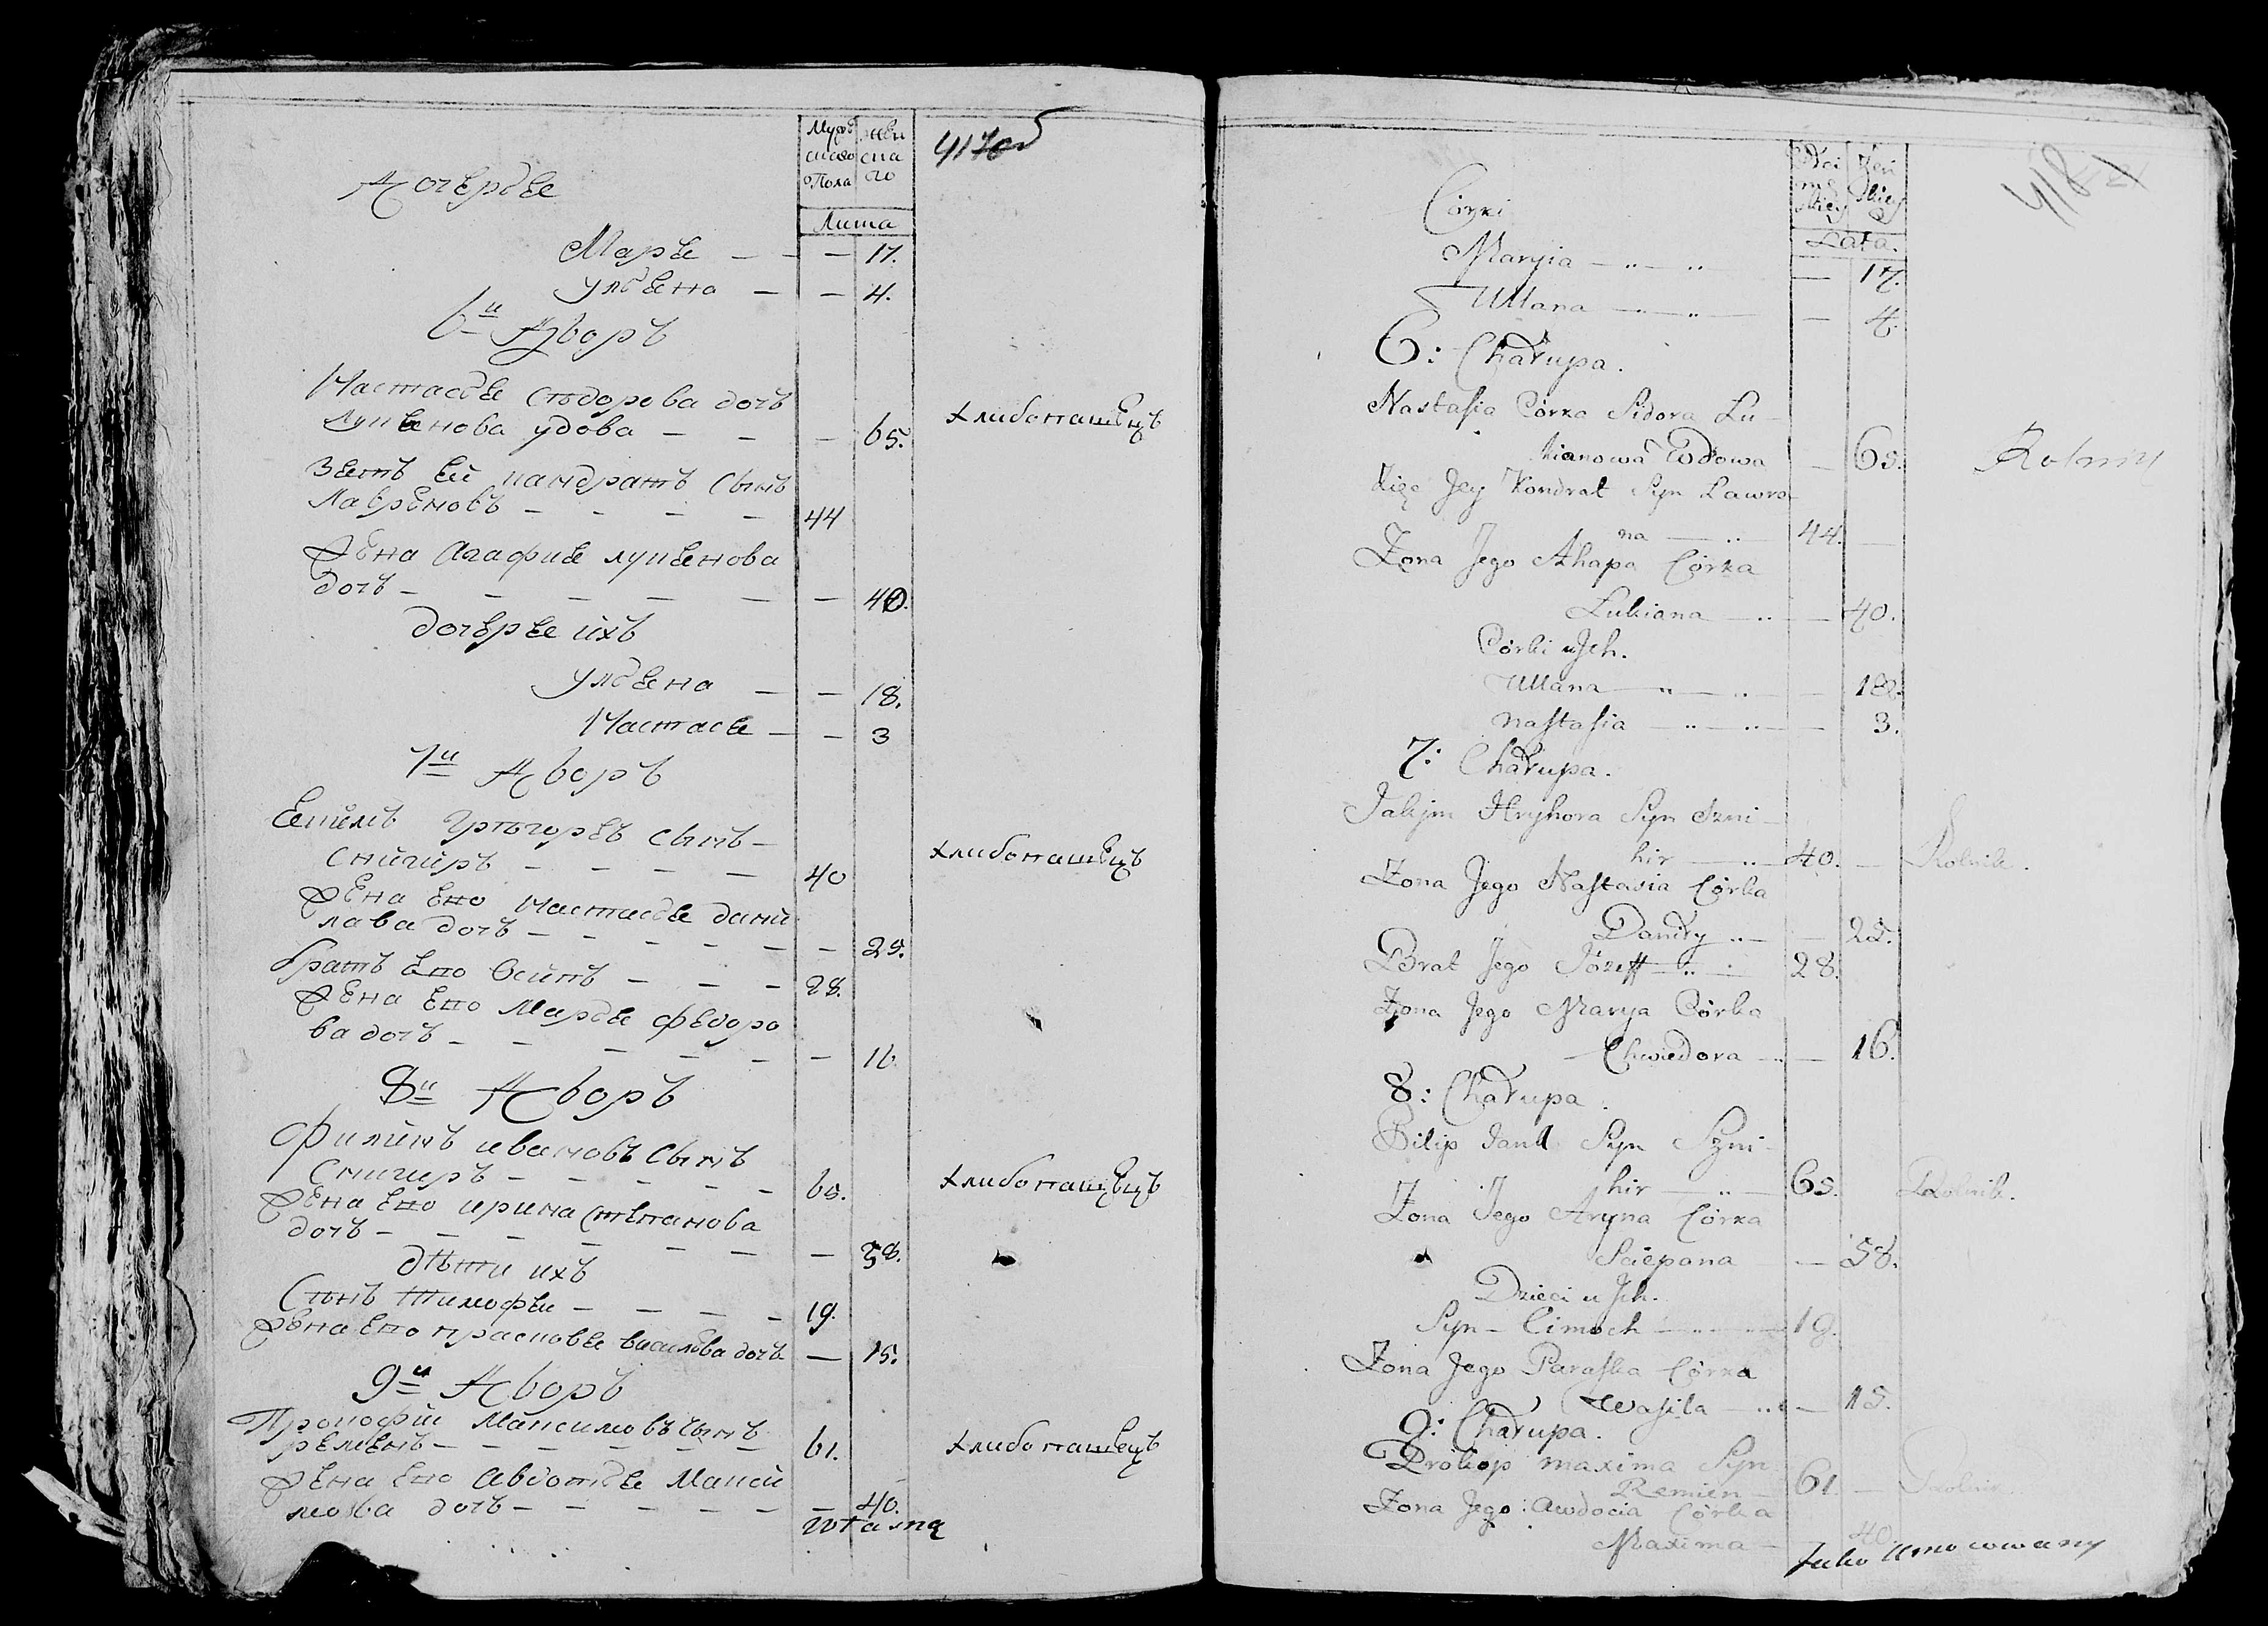 Мужескаго Пола
женскаго
Лита
417об
Дочерѣе
Марѣе — — — 17.
Улѣена — — 4.
6й Дворъ
Настасье Сидорова дочь
Лукѣенова удова — — — 65. хлибопашецъ
Зеть ей Кандратъ Сынъ
Лавреновъ — — — — 44
Жена Агафие Лукѣенова
дочь — — — — — — 40.
дочерѣе ихъ
Улѣена — — 18.
Настасѣе — — 3
7й Дворъ
Екимъ Григорѣвъ Сынъ —
Снигиръ — — — — 40 хлибопашецъ
Жена Его Настасье Дани
лава дочь — — — — — — 25.
братъ Его Осипъ — — — 28.
Жена Его Марье Федоро
ва дочь — — — — — — 16.
8й Дворъ
Филипъ Ивановъ Сынъ
Снигиръ — — — — — 65. хлибопашецъ
Жена Его Ирина Степанова
дочь — — — — — — — 58.
дѣти ихъ
Сынъ Тимофѣи — — — — 19.
Жена Его Прасковѣе Василѣва дочь — 15.
9й Дворъ
Прокофии Максимовъ Сынъ
Ремень — — — — — — 61. хлибопашецъ
Жена Его Авдотѣе Макси
мова дочь — — — — — — 40.
Własną
418
Męskiey
Żeńskiey
Lata.
Córki
Maryia — 17.
Ullana — 4.
6: Chałupa.
Nastasia Córka Sidora Łu-
kianowa Wdowa — 65. Rolnik
Zięć Jey Kondrat Syn Ławro-
na — 44. —
Żona Jego Ahapa Córka
Łukiana — 40.
Córki u Jch.
Ullana — 18.
Nastasia — 3.
7: Chałupa.
Jakjm Hryhora Syn Szni-
hir — 40. — Rolnik.
Żona Jego Nastasia Córka
Daniły — 25.
Brat Jego Józeff — 28.
Żona Jego Marya Córka
Chwiedora — 16.
8: Chałupa.
Pilip Syn Szni-
hir — 65. Rolnik.
Żona Jego Aryna Córka
Sciepana — 58.
Dzieci u Jch.
Syn – Cimoch — 19.
Żona Jego Paraska Córka
Wasila — 15.
9: Chałupa.
Prokop Maxima Syn
Remień — 61. — Rolnik
Żona Jego Awdocia Córka
Maxima — 40.
Jako Umocowany